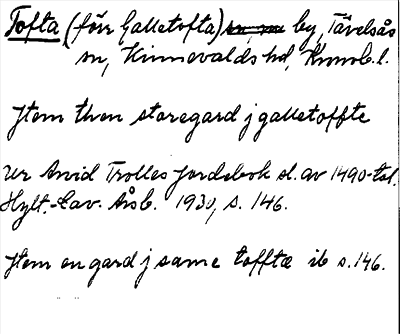 Tofta (förr Galletofta) by, Tävelsås
sn, Kinnevalds hd, Kronob. l.
Jtem then storegard j galletoffte
Ur Arvid Trolles Jordebok sl. av 1490-tal.
Hylt.-Cav. Årsb. 1930, s. 146.
Jtem en gard j same tofftæ ib s. 146.